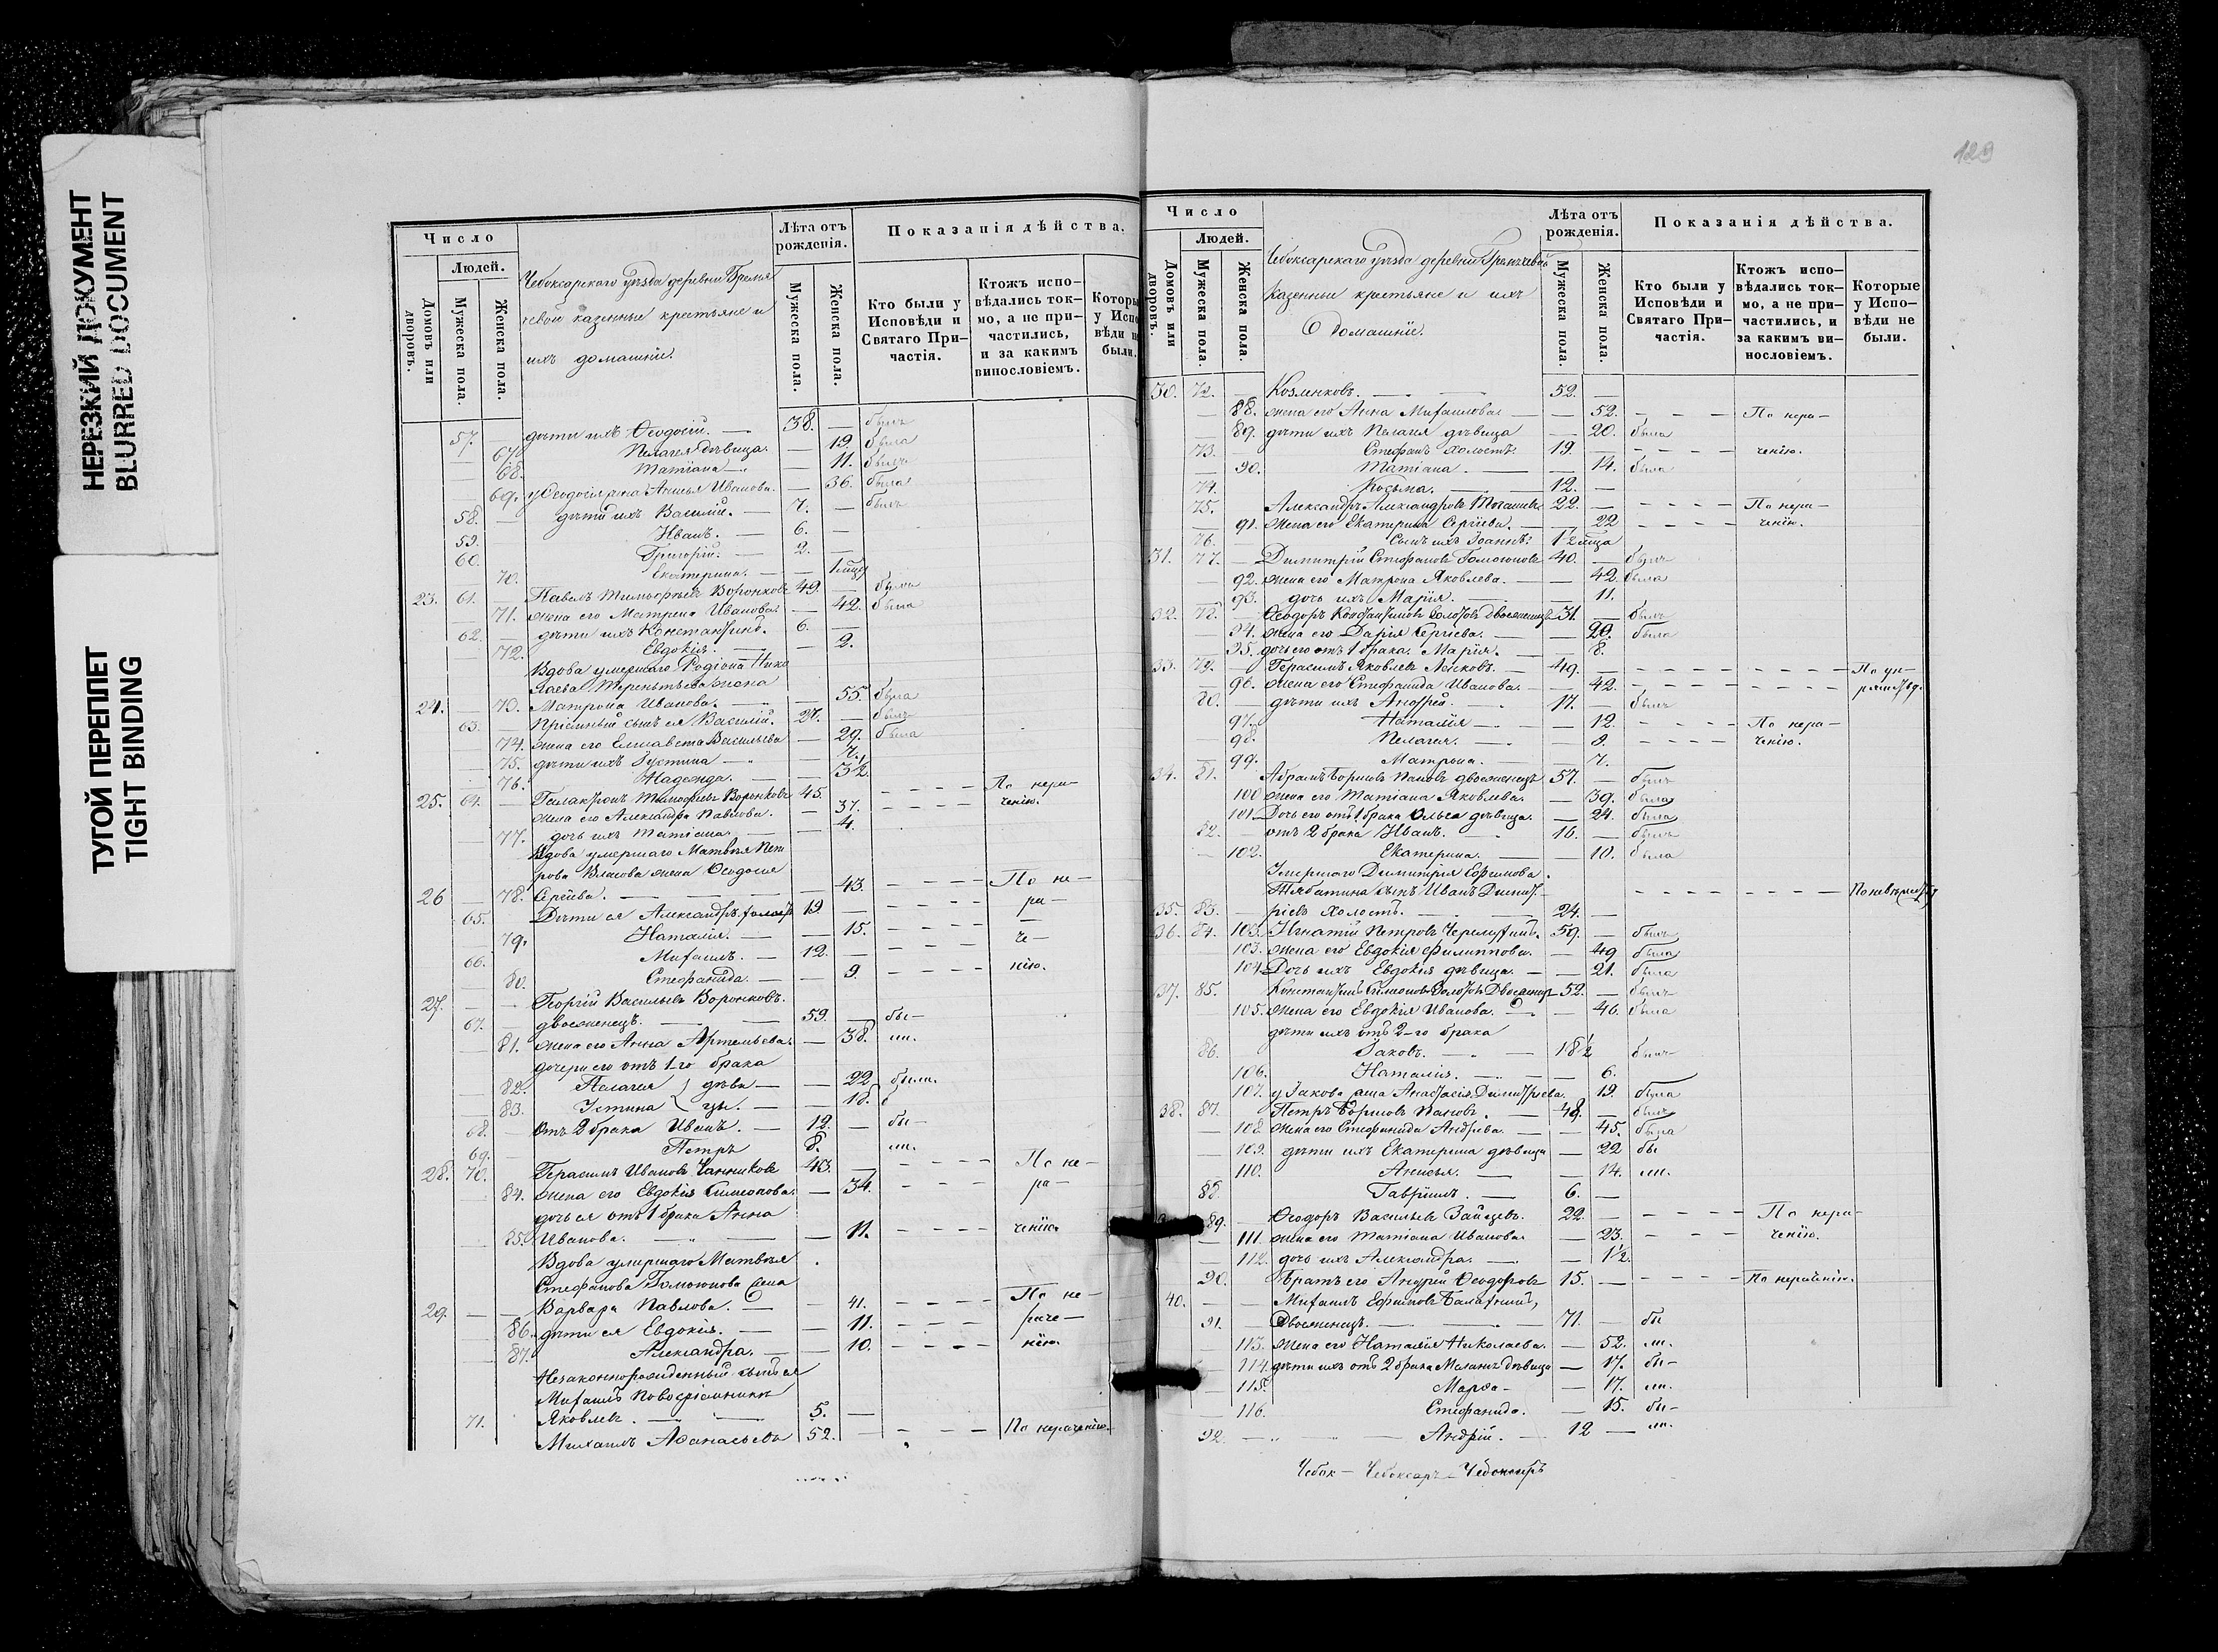 НЕРЕЗКИЙ ДОКУМЕНТ
BLURRED DOCUMENT
ТУГОЙ ПЕРЕПЛЕТ
TIGHT BINDING
Число
Людей.
Домовъ или дворовъ.
Мужеска пола.
Женска пола.
Чебоксарскаго уѣзда деревни
казенные крестьяне и
ихъ домашніе.
Лѣта отъ рожденія.
Мужеска пола.
Женска пола.
Показанія дѣйства.
Кто были у Исповѣди и Святаго При-частія.
Ктожъ испо-вѣдались ток-мо, а не при-частились, и за какимъ винословіемъ.
Которы у Исп вѣди н были.
57. — дѣти ихъ Ѳеодосій. — 38. — былъ
67. Пелагея дѣвица. — 19. была
68. Татіана — 11.
69. у Ѳеодосія жена Ивановна. — 36. была
58. — дѣти ихъ Василій. — 7. — былъ
59. Иванъ. — 6. —
60. Григорій. — 2. —
70. Екатерина. —
23. 61. — Павелъ Воронковъ 49. —
71. жена его Матрена Иванова — 42. была
62. — дѣти ихъ Константинъ. 6. —
72. Евдокія. — 2.
Вдова умершаго Родіона Нико
лаева Терентьева жена
24. 73. Матрона Иванова. — 55. была
63. — Пріемный сынъ ея Василій. 27. — былъ
74. жена его Елисавета Васильева — 29. была
75. дѣти ихъ Іустина — 7.
76. Надежда. — 3½
25. 64. — Воронковъ 45. — - - - - По нера-
жена его Александра Павлова. — 37. ченію.
77. дочь ихъ Татіана. — 4.
Вдова умершаго Матвѣя Пет
рова Власова жена Ѳеодосія
26 — 78. Сергѣева. — 43. - - - - По не-
65. Дѣти ея Александръ 19. — - - - - ра-
79. Наталія. — 15. - - - -
66. Михаилъ. — 12. — - - - - че-
80. Стефанида. — 9. - - - - нію.
27. — Георгій Васильевъ Воронковъ.
67. — двоеженецъ. — 59. — бы-
81. жена его Анна Артемьева. — 38. ли.
дочери его отъ 1-го брака
82. Пелагея } дѣви- — 22 были.
83. Устина } цы. — 18.
68. — отъ 2 брака Иванъ. — 12. — бы-
69. Петръ 8. ли.
28. 70. Герасимъ Ивановъ 43. — - - - - По не-
84. жена его Евдокія Симеонова. — 34. - - - ра-
дочь ея отъ 1 брака Анна
85. Иванова. — 11. - - - - ченію.
Вдова умершаго Матвѣя
Стефанова жена
29. — Варвара Павлова. — 41. - - - - По не-
86. дѣти ея Евдокія. — 11. - - - - раче-
87. Александра. — 10. - - - - нію.
Незаконнорожденный сынъ ея
Михаилъ
71. Яковлевъ. — 5. —
Михаилъ Аѳанасьевъ 52. — - - - По нераченію.
129
Число
Людей.
Домовъ или дворовъ.
Мужеска пола.
Женска пола.
Чебоксарскаго уѣзда деревни
казенные крестьяне и ихъ
домашніе.
Лѣта отъ рожденія.
Мужеска пола.
Женска пола.
Показанія дѣйства.
Кто были у Исповѣди и Святаго При-частія.
Ктожъ испо-вѣдались ток-мо, а не при-частились, и за какимъ ви-нословіемъ.
Которые у Испо-вѣди не были.
30. 72. — Козленковъ. — 52. —
— 88. жена его Анна Михаилова — 52. - - - По нера-
— 89. дѣти ихъ Пелагея дѣвица — 20. была
73. — Стефанъ холостъ. 19. — - - - - ченію.
— 90. Татіана. — 14. была
74. Козьма. — 12. —
75. Александръ Александровъ 22. — - - - - По нера-
91. жена его Екатерина Сергѣева. — 22 - - - - ченію.
76. Сынъ ихъ Іоаннъ.
31. 77. — Димитрій Стефановъ 40. — былъ
92. жена его Матрона Яковлева. — 42. была
93. дочь ихъ Марія. — 11.
32. 78. — Ѳеодоръ двоеженецъ 31. — былъ
94. жена его Дарія Сергѣева. — 20. была
95. дочь его отъ 1 брака. Марія. — 8.
33. 79. — Герасимъ Яковлевъ 49. — - - - - - - - -
96. жена его Стефанида Иванова. — 42. - - - - - - - -
80. — дѣти ихъ Андрей. 17. — былъ
97. Наталія — 12. - - - - По нера-
98. Пелагея. — 9. - - - - ченію.
99. Матрона. 7.
34. 81. Абрамъ Борисовъ Пановъ двоеженецъ 57. — былъ
100 жена его Татіана Яковлева. — 39. была
101 Дочь его отъ 1 брака Ольга дѣвица. — 24. была
82. — отъ 2 брака Иванъ. 16. — былъ
— 102. Екатерина. — 10. была
Умершаго Димитрія Ефимова
сынъ Иванъ Димит-
35. 83. — ріевъ холостъ. — 24. —
36. 84. 103. Игнатій Петровъ 59. — былъ
103. жена его Евдокія Филиппова. — 49 была
104 Дочь ихъ Евдокія дѣвица. — 21. была
37. 85. Константинъ Двоеженецъ 52. — былъ
105. жена его Евдокія Иванова. — 46. была
дѣти ихъ отъ 2-го брака
86. Іаковъ. — 18½ былъ
106. Наталія. — 6.
107. у Іакова жена Анастасія Димитріева. 19. была
38. 87. Петръ Борисовъ Пановъ. — 48. — былъ
— 108. жена его Стефанида Андреева. — 45. была
— 109. дѣти ихъ Екатерина дѣвица — 22 бы
110. Анисья. — 14. ли.
88. Гавріилъ. — 6. —
89. — Ѳеодоръ Васильевъ Зайцевъ. 22. — - - - - По нера-
— 111. жена его Татіана Иванова — 23. - - - ченію.
— 112. дочь ихъ Александра. — 1½.
90. Братъ его Андрей Ѳеодоровъ 15. — - - - - По нераченію.
40. — — Михаилъ Ефимовъ
91. — Двоеженецъ. — 71. — бы
— 113. жена его Наталія Николаева. — 52. ли.
— 114. дѣти ихъ отъ 2 брака дѣвица — 17. бы-
— 115. Марѳа — — 17. ли.
— 116. Стефанида. — 15. бы-
92. — — Андрей. — 12 — ли.